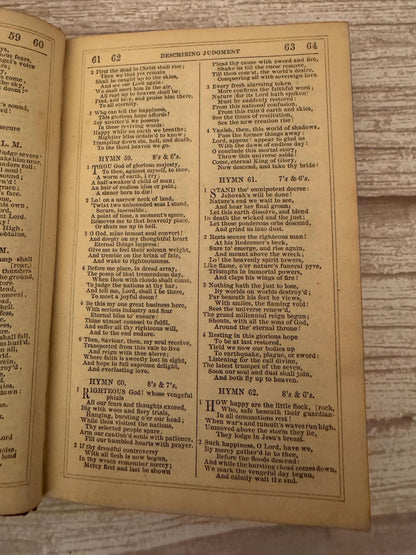 59 60
L. M.
61 62
DESCRIBING JUDGMENT
63 64
2 First the dead in Christ shall rise;
Then we that yet remain
Shall be caught up to the skies,
And see our Lord again:
We shall meet him in the air,
All rapt up to heaven shall be;
Find, and love, and praise him there,
To all eternity.
3 Who can tell the happiness,
This glorious hope affords?
Joy unutter'd we possess
In these reviving words:
Happy while on earth we breathe;
Mightier bliss ordain'd to know;
Trampling down sin, hell, and death,
To the third heaven we go.
HYMN 59. 8's & 6's.
1 THOU God of glorious majesty,
To thee, against myself, to thee,
A worm of earth, I cry;
A half-awaken'd child of man;
An heir of endless bliss or pain;
A sinner born to die!
2 Lo! on a narrow neck of land,
'Twixt two unbounded seas I stand,
Secure, insensible;
A point of time, a moment's space,
Removes me to that heavenly place,
Or shuts me up in hell.
3 O God, mine inmost soul convert!
And deeply on my thoughtful heart
Eternal things impress:
Give me to feel their solemn weight,
And tremble on the brink of fate,
And wake to righteousness.
4 Before me place, in dread array,
The pomp of that tremendous day,
When thou with clouds shalt come
To judge the nations at thy bar:
And tell me, Lord, shall I be there,
To meet a joyful doom?
5 Be this my one great business here,
With serious industry and fear
Eternal bliss to' ensure:
Thine utmost counsel to fulfil,
And suffer all thy righteous will,
And to the end endure.
6 Then, Saviour, then, my soul receive,
Transported from this vale to live
And reign with thee above;
Where faith is sweetly lost in sight,
And hope in full supreme delight,
And everlasting love.
HYMN 60. 8's & 7's.
1 RIGHTEOUS God! whose vengeful
phials
All our fears and thoughts exceed,
Big with woes and fiery trials,
Hanging, bursting o'er our head;
While thou visitest the nations,
Thy selected people spare;
Arm our caution'd souls with patience,
Fill our humbled hearts with prayer.
2 If thy dreadful controversy
With all flesh is now begun,
In thy wrath remember mercy;
Mercy first and last be shown
Plead thy cause with sword and fire,
Shake us till the curse remove,
Till thou com'st, the world's desire,
Conquering all with sovereign love.
3 Every fresh alarming token
More confirms the faithful word;
Nature (for its Lord hath spoken)
Must be suddenly restored:
From this national confusion,
From this ruin'd earth and skies,
See the times of restitution,
See the new creation rise!
4 Vanish, then, this world of shadows,
Pass the former things away:
Lord, appear! appear to glad us
With the dawn of endless day!
O conclude this mortal story,
Throw this universe aside!
Come, eternal King of Glory,
Now descend, and take thy bride!
HYMN 61. 7's & 6's.
1 STAND the' omnipotent decree:
Jehovah's will be done!
Nature's end we wait to see,
And hear her final groan:
Let this earth dissolve, and blend
In death the wicked and the just;
Let those ponderous orbs descend,
And grind us into dust.
2 Rests secure the righteous man!
At his Redeemer's beck,
Sure to' emerge, and rise again,
And mount above the wreck;
Lo! the heavenly spirit towers,
Like flame, o'er nature's funeral pyre,
Triumphs in immortal powers,
And claps his wings of fire!
3 Nothing hath the just to lose,
By worlds on worlds destroy'd;
Far beneath his feet he views,
With smiles, the flaming void:
Sees the universe renew'd,
The grand millennial reign begun;
Shouts, with all the sons of God,
Around the' eternal throne!
4 Resting in this glorious hope
To be at last restored,
Yield we now our bodies up
To earthquake, plague, or sword:
Listening for the call divine,
The latest trumpet of the seven,
Soon our soul and dust shall join,
And both fly up to heaven.
HYMN 62. 8's & 6's.
1 HOW happy are the little flock, [rock,
Who, safe beneath their guardian
In all commotions rest!
When war's and tumult's waves run high,
Unmoved above the storm they lie,
They lodge in Jesu's breast.
2 Such happiness, O Lord, have we,
By mercy gather'd in to thee,
Before the floods descend:
And while the bursting cloud comes down,
We mark the vengeful day begun,
And calmly wait the end.